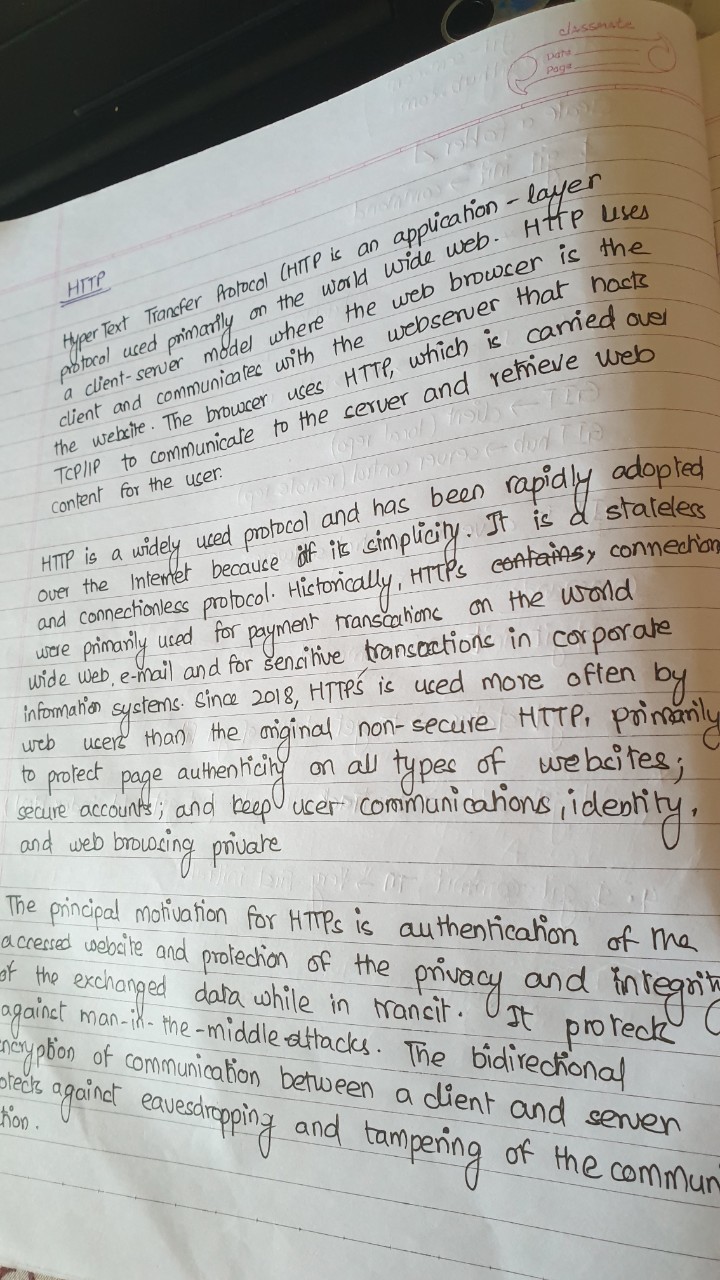 classmate
Date
Page
HTTP
HyperText Transfer Protocol (HTTP is an application-layer
protocol used primarily on the world wide web. HTTP uses
a client-server model where the web browser is the
client and communicates with the webserver that hosts
the website. The browser uses HTTP, which is carried over
TCP/IP to communicate to the server and retrieve web
content for the user.
HTTP is a widely used protocol and has been rapidly adopted
over the Internet because of its simplicity. It is a stateless
and connectionless protocol. Historically, HTTPs contains, connection
were primarily used for payment transcations on the world
wide web, e-mail and for sensitive transactions in corporate
information systems. Since 2018, HTTPS is used more often by
web users than the original non-secure HTTP, primarily
to protect page authenticity on all types of websites;
secure accounts; and keep user communications, identity,
and web browsing private
The principal motivation for HTTPs is authentication of the
accessed website and protection of the privacy and integrit
of the exchanged data while in transit. It protects
against man-in-the-middle attacks. The bidirectional
ncryption of communication between a client and server
otects against eavesdropping and tampering of the commun
tion.